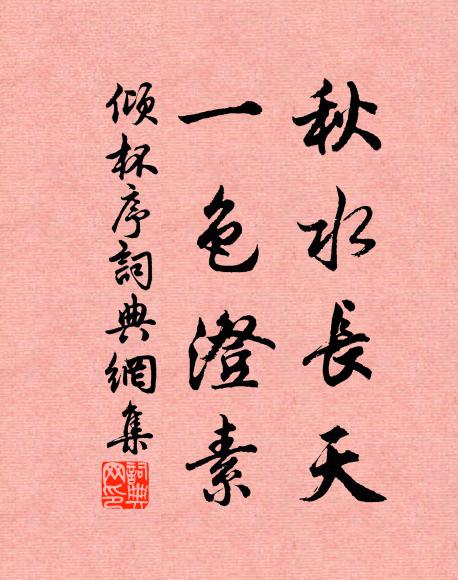 秋水長天
一色澄素
傾杯序詞典網集
詞典
网印